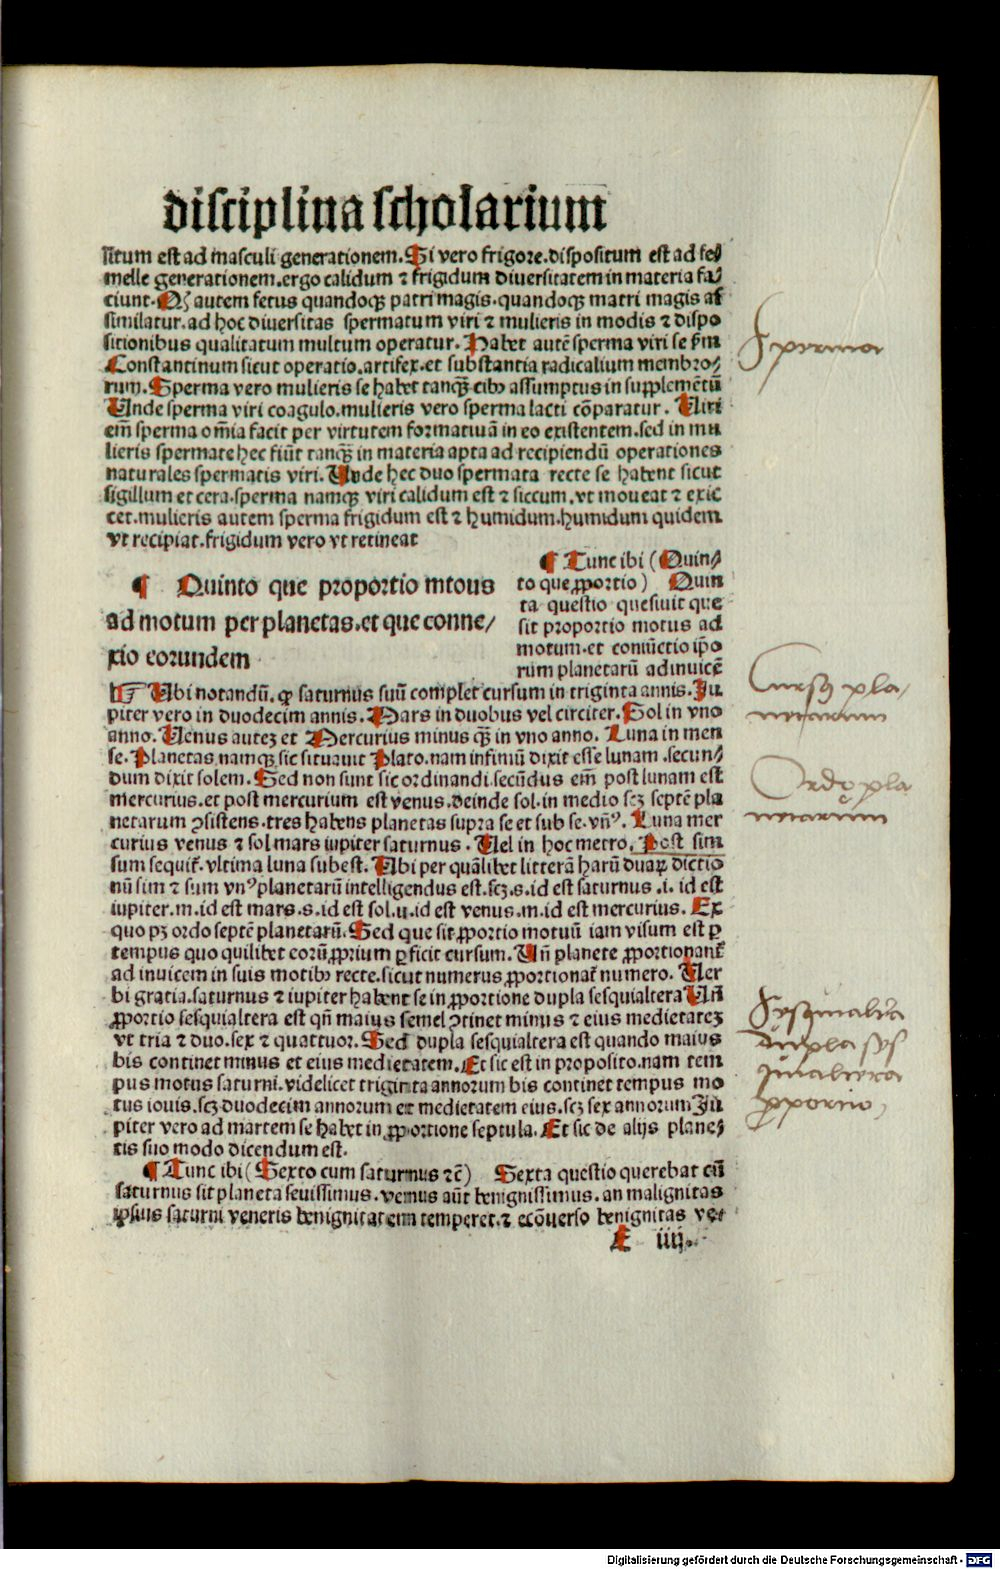 disciplina scholarium
situm est ad masculi generationem. Si vero frigore. dispositum est ad fe⸗
melle generationem. ergo calidum ⁊ frigidum diuersitatem in materia fa⸗
ciunt. autem fetus quandoqꝫ patri magis. quandoqꝫ matri magis as
similatur. ad hoc diuersitas spermatum viri ⁊ mulieris in modis ⁊ dispo
sitionibus qualitatum multum operatur. Habet autē sperma viri se ẜm
Constantinum sicut operatio. artifex. et substantia radicalium membro⸗
rum. Sperma vero mulieris se habet tanqꝫ cibꝰ assumptus in supplementū
Unde sperma viri coagulo. mulieris vero sperma lacti cōparatur. Uiri
em̄ sperma om̄ia facit per virtutem formatiuā in eo existentem. sed in mu
lieris spermate hec fiūt tanqꝫ in materia apta ad recipiendū operationes
naturales spermatis viri. Unde hec duo spermata recte se habent sicut
sigillum et cera. sperma namqꝫ viri calidum est ⁊ siccum. vt moueat ⁊ exic
cet. mulieris autem sperma frigidum est ⁊ humidum. humidum quidem
vt recipiat. frigidum vero vt retineat
¶ Quinto que proportio mtous
ad motum per planetas. et que conne⸗
xio eorundem
¶ Tunc ibi (Quin⸗
to que ꝓportio) Quin
ta questio quesiuit que
sit proportio motus ad
motum. et coniūctio ip̄o
rum planetarū adinuicē
Ubi notandū. ꝙ saturnus suū complet cursum in triginta annis. Iu
piter vero in duodecim annis. Mars in duobus vel circiter. Sol in vno
anno. Uenus autez et Mercurius minus qꝫ in vno anno. Luna in men
se. Planetas namqꝫ sic situauit Plato. nam infimū dixit esse lunam. secun⸗
dum dixit solem. Sed non sunt sic ordinandi. secūdus em̄ post lunam est
mercurius. et post mercurium est venus. deinde sol. in medio scꝫ septē pla
netarum ꝯsistens. tres habens planetas supra se et sub se. vn̄ꝰ. Luna mer
curius venus ⁊ sol mars iupiter saturnus. Uel in hoc metro. Post sim
sum sequit̄. vltima luna subest. Ubi per quālibet litterā harū duaꝝ dictio
nū sim ⁊ sum vnꝰ planetarū intelligendus est. scꝫ. s. id est saturnus. i. id est
iupiter. m. id est mars. s. id est sol. u. id est venus. m. id est mercurius. Ex
quo pꝫ ordo septē planetarū. Sed que sit ꝓportio motuū iam visum est ꝑ
tempus quo quilibet eorū ꝓprium ꝑficit cursum. Un̄ planete ꝓportionant̄
ad inuicem in suis motibꝰ recte. sicut numerus ꝓportionat̄ numero. Uer
bi gratia. saturnus ⁊ iupiter habent se in ꝓportione dupla sesquialtera Un̄
ꝓportio sesquialtera est qn̄ maius semel ꝯtinet minus ⁊ eius medietatez
vt tria ⁊ duo. sex ⁊ quattuor. Sed dupla sesquialtera est quando maius
bis continet minus et eius medietatem. Et sic est in proposito. nam tem
pus motus saturni. videlicet triginta annorum bis continet tempus mo
tus iouis. scꝫ duodecim annorum et medietatem eius. scꝫ sex annorum Iu
piter vero ad martem se habet in ꝓportione septula. Et sic de alijs plane⸗
tis suo modo dicendum est.
¶ Tunc ibi (Sexto cum saturnus ⁊c̄) Sexta questio querebat cū
saturnus sit planeta seuissimus. venus aūt benignissimus. an malignitas
ipsius saturni veneris benignitatem temperet. ⁊ ecōuerso benignitas ve⸗
E iiij.
Sperma
Cursꝫ pla⸗
netarum
Ordo pla
netarum
Sesquialtera
dupla ses
quialtera
ꝓportio
Digitalisierung gefördert durch die Deutsche Forschungsgemeinschaft - DFG